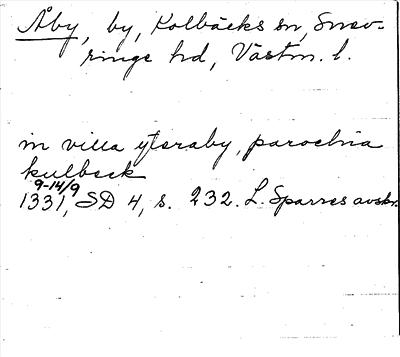 Åby, by, Kolbäcks sn, Snev-
ringe hd, Västm. l.
in villa ytraby, parochia
kulbeck
9-14/9
1331, SD 4, s. 232. L. Sparres avskr.